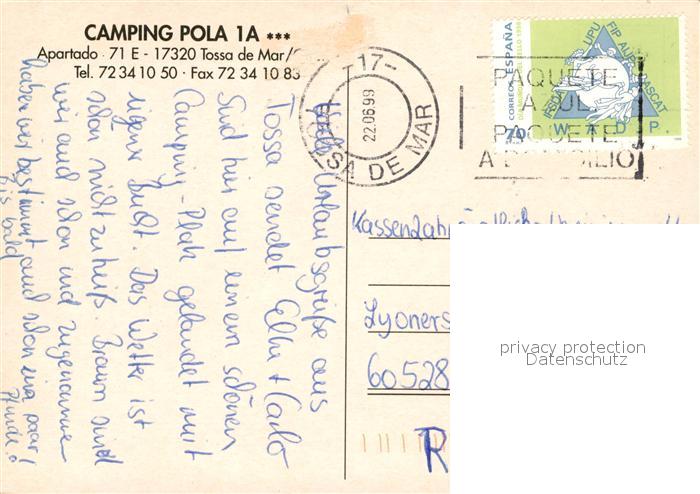 CAMPING POLA 1A ***
Apartado 71 E - 17320 Tossa de Mar/
Tel. 72 34 10 50 · Fax 72 34 10 83
Urlaubsgrüße aus
Tossa sendet Elli + Carlo
Sind hier auf einem schönen
Camping-Platz gelandet mit
eigener Bucht. Das Wetter ist
schön nicht zu heiß. Braun sind
wir auch schon und zugenommen
haben wir bestimmt auch schon ein paar
Pfunde!
Bis bald
-17-
22.06.99
TOSSA DE MAR
PAQUETE
AZUL
PAQUETE
A DOMICILIO
CORREOS ESPAÑA
DIA MUNDIAL DEL SELLO 1998
70
UPU
FIP
ASCAT
IFSDA
W A D P
Lyoners
60528
R
privacy protection
Datenschutz